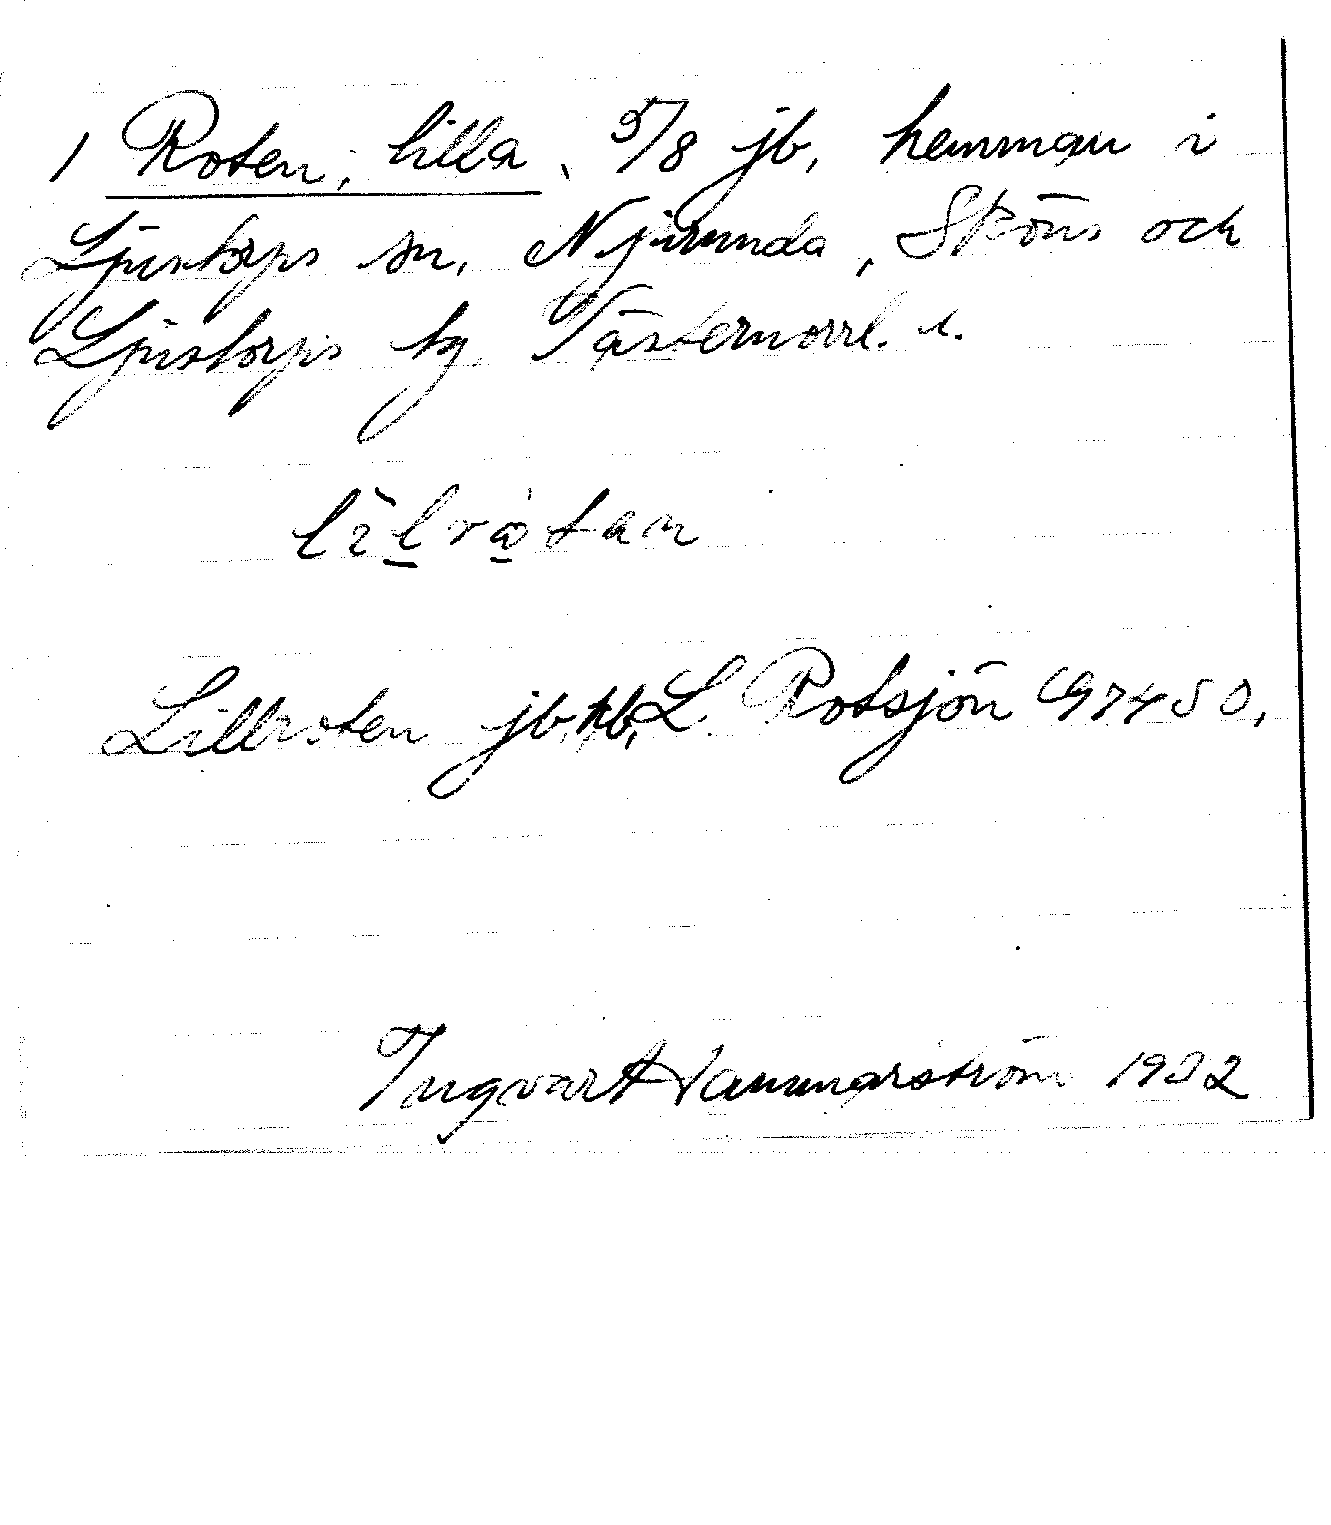 1 Roten, lilla, 5/8 jb, hemman i
Ljustorps sn. Njurunda, Sköns och
Ljustorps tg Västernorrl. l.
Lillroten jb. kb, L. Rotsjön G 97450,
Ingvar Hammarström 1932